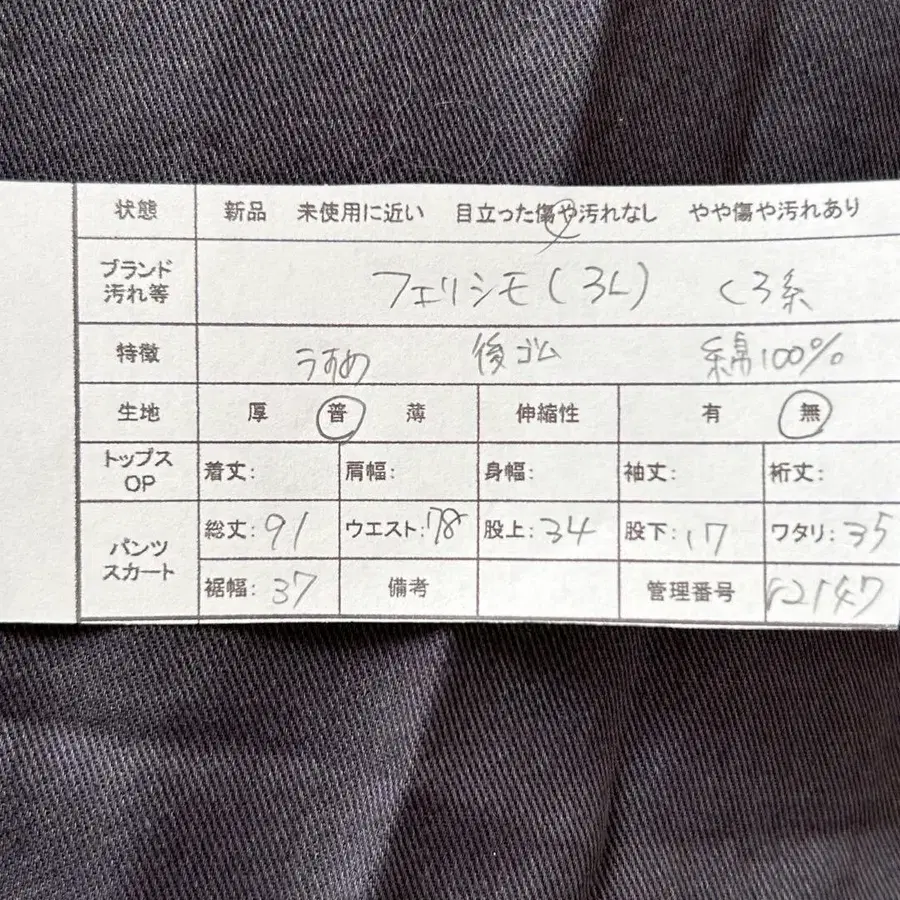 状態 新品 未使用に近い 目立った傷や汚れなし やや傷や汚れあり
ブランド
汚れ等 フェリシモ(3L) くろ系
特徴 うすめ 後ゴム 綿100%
生地 厚 普 薄 伸縮性 有 無
トップス
OP 着丈: 肩幅: 身幅: 袖丈: 裄丈:
パンツ
スカート 総丈:91 ウエスト:78 股上:34 股下:17 ワタリ:35
裾幅:37 備考 管理番号